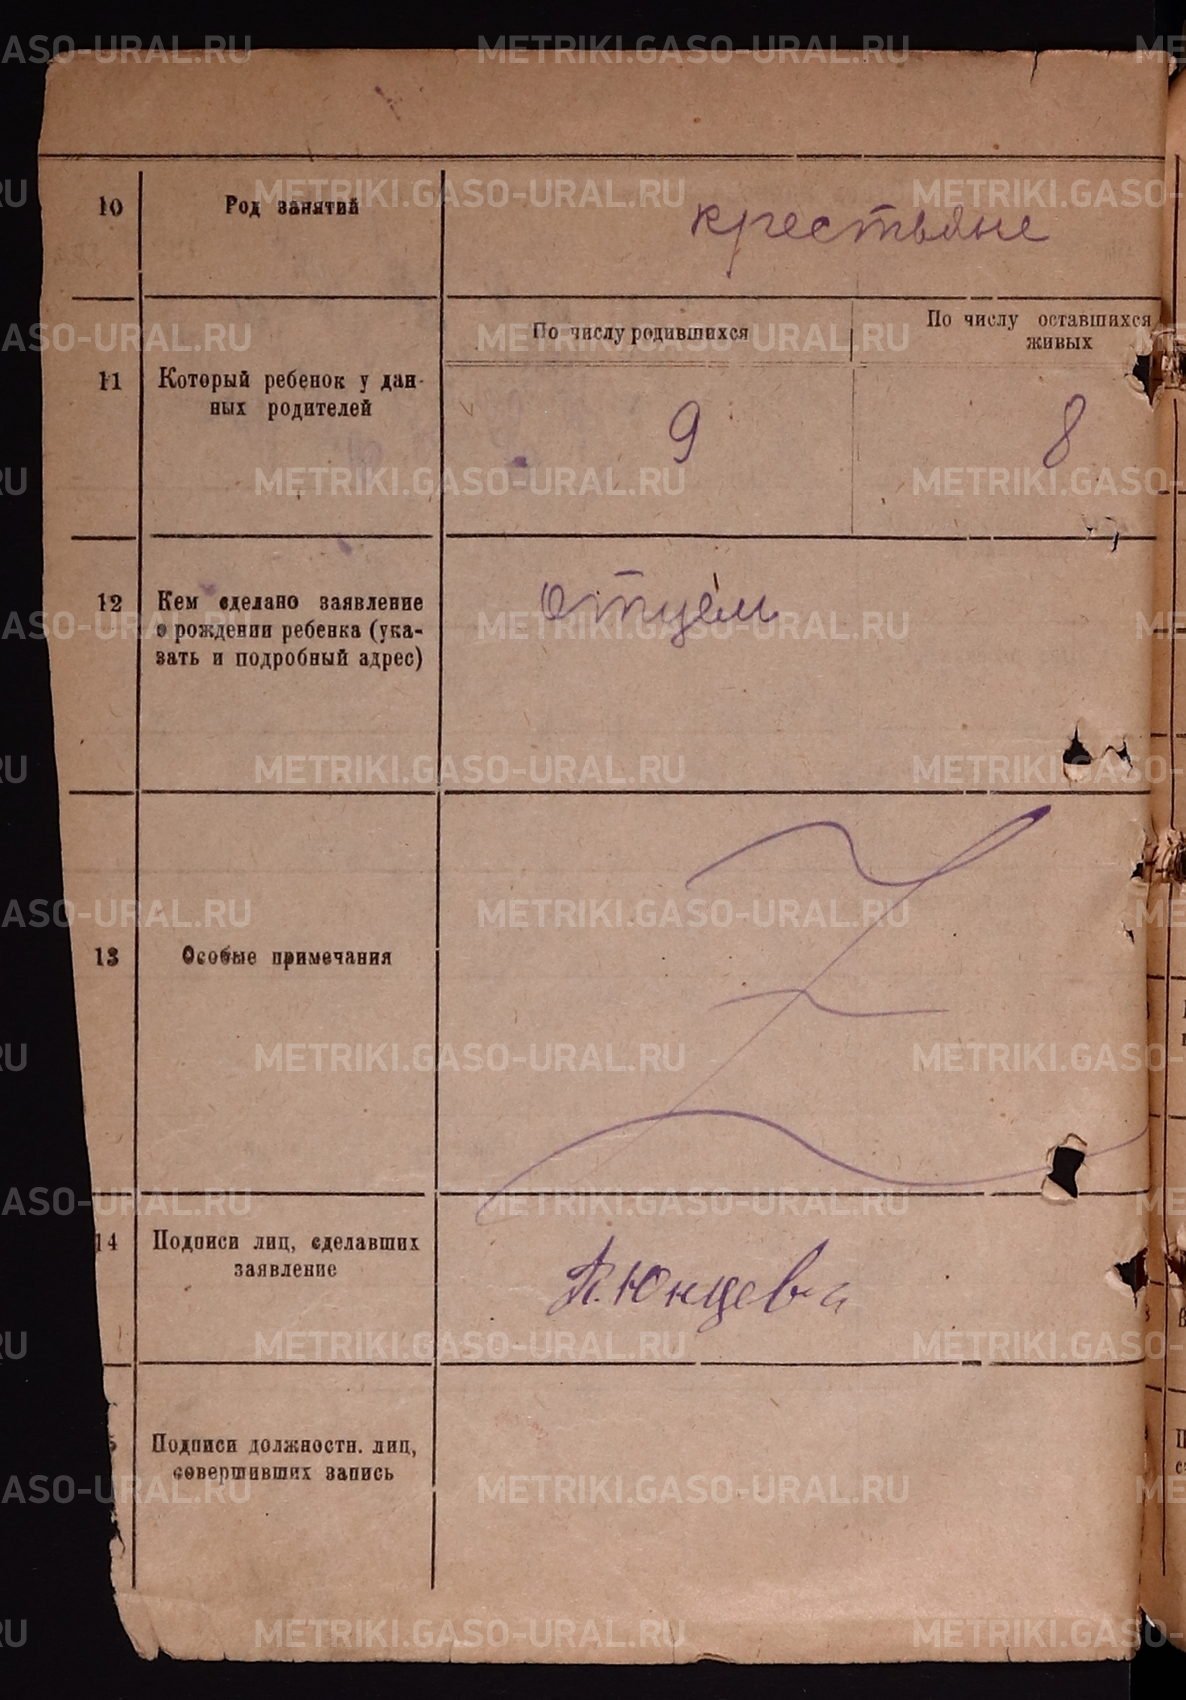 10 Род занятий крестьяне
По числу родившихся
По числу оставшихся
живых
11 Который ребенок у дан-
ных родителей
9 8
12 Кем сделано заявление
о рождении ребенка (ука-
зать и подробный адрес)
отцем
13 Особые примечания
14 Подписи лиц, сделавших
заявление
Юнцева
Подписи должностн. лиц,
совершивших запись
METRIKI.GASO-URAL.RU